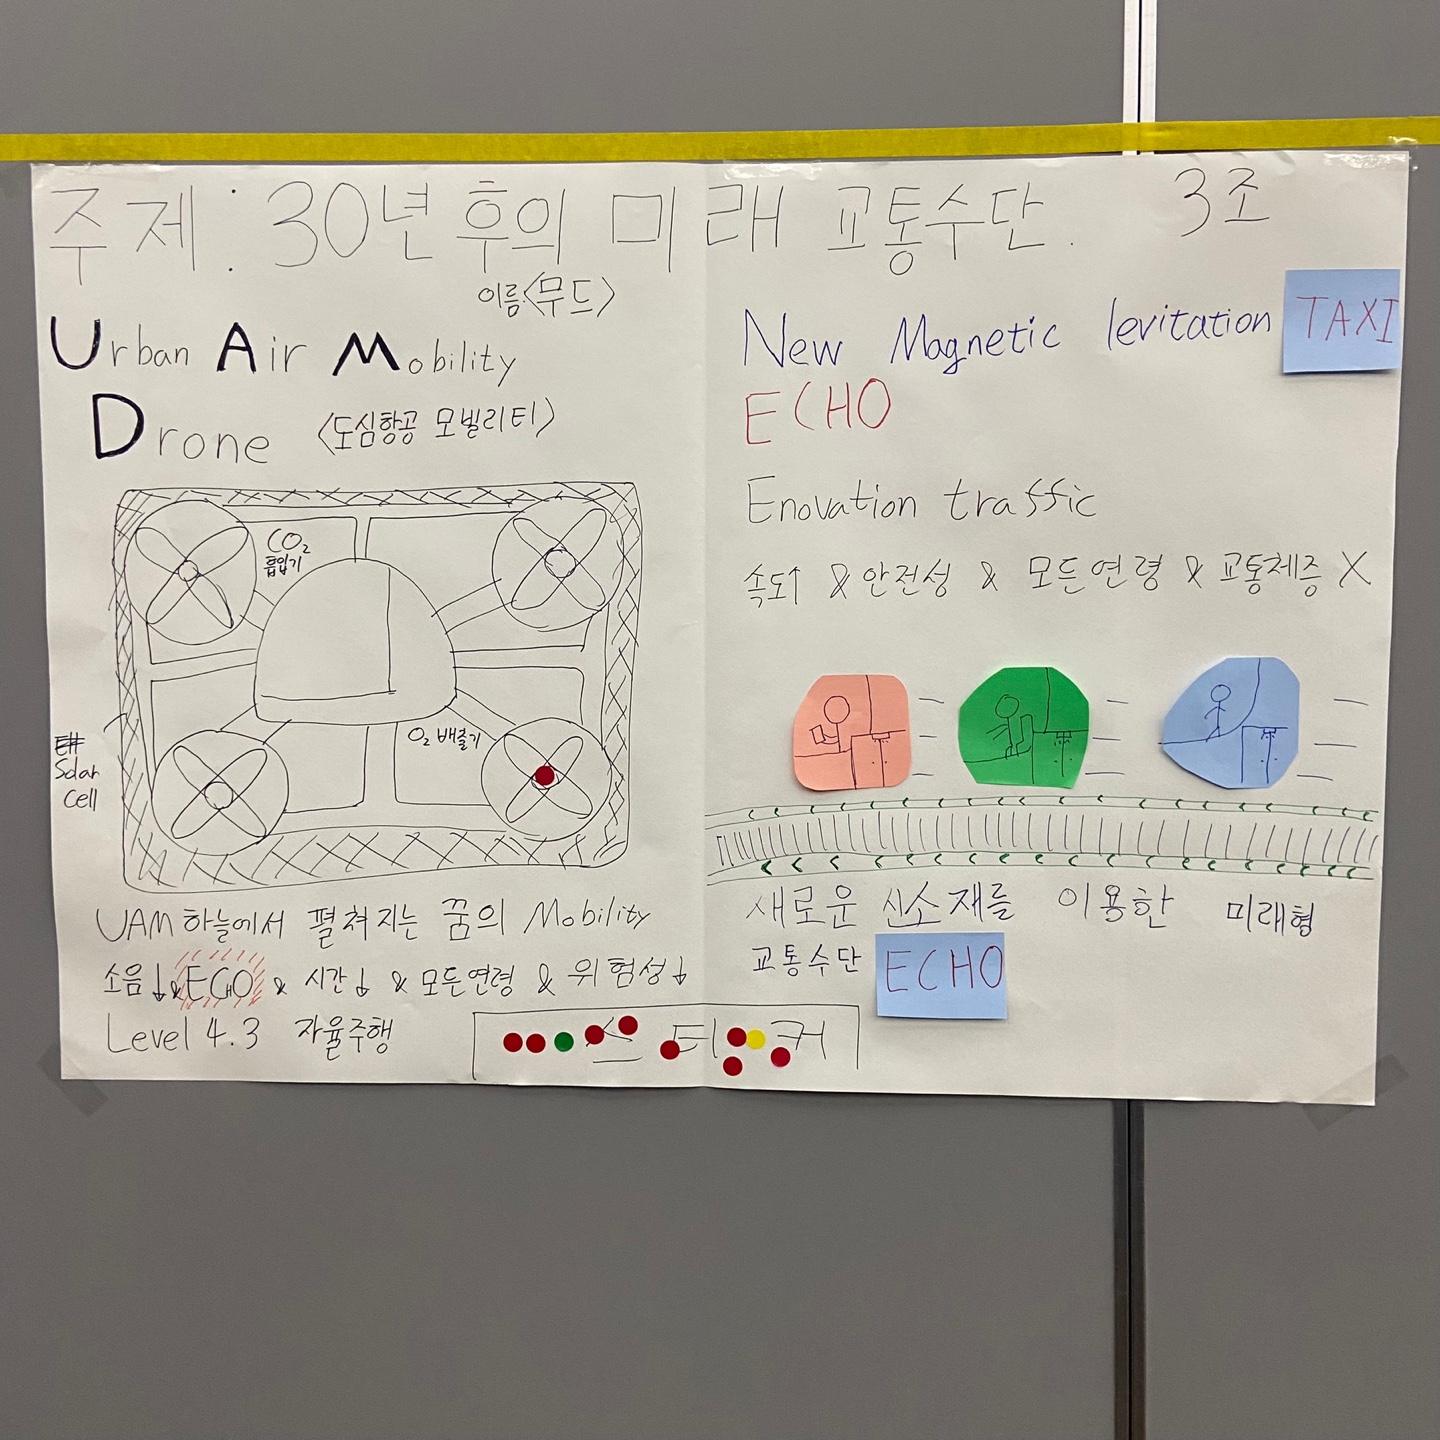 주제: 30년 후의 미래 교통수단.
3조
이름:<무드>
Urban Air Mobility
Drone <도심항공 모빌리티>
CO₂
흡입기
O₂ 배출기
Solar
Cell
UAM 하늘에서 펼쳐지는 꿈의 Mobility
소음↓& ECHO & 시간↓ & 모든연령 & 위험성↓
Level 4.3 자율주행
스티커
New Magnetic levitation TAXI
ECHO
Enovation traffic
속도↑ & 안전성 & 모든연령 & 교통체증 X
새로운 신소재를 이용한 미래형
교통수단 ECHO